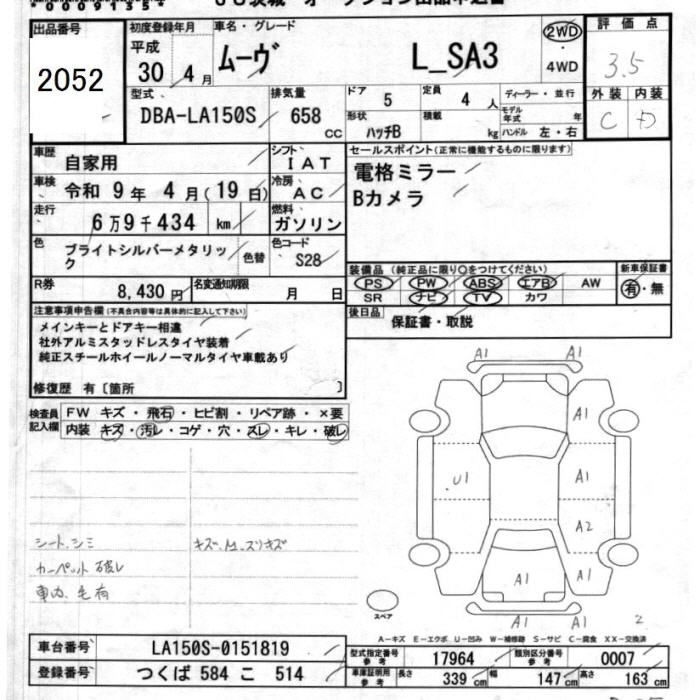 出品番号
2052
初度登録年月
平成
30 年 4 月
車名・グレード
ムーヴ L_SA3
2WD
・
4WD
評価点
3.5
外装 内装
C D
型式
DBA-LA150S
排気量
658 CC
ドア 5
定員 4 人
形状 ハッチB
積載 kg
ディーラー・並行
モデル年式 年
ハンドル 左・右
車歴 自家用
シフト IAT
車検 令和 9 年 4 月(19 日)
冷房 AC
走行 6 万 9 千 434 km
燃料 ガソリン
色 ブライトシルバーメタリック
色替
色コード S28
R券 8,430 円
名変通知期限 月 日
セールスポイント(正常に機能するものに限ります)
電格ミラー
Bカメラ
装備品(純正品に限り○をつけてください)
PS PW ABS エアB AW
SR ナビ TV カワ
新車保証書
有・無
後日品 保証書・取説
注意事項申告欄(不具合内容等は具体的に記入して下さい)
メインキーとドアキー相違
社外アルミスタッドレスタイヤ装着
純正スチールホイールノーマルタイヤ車載あり
修復歴 有〔箇所 〕
検査員記入欄
FW キズ・飛石・ヒビ割・リペア跡・×要
内装 キズ・汚レ・コゲ・穴・スレ・キレ・破レ
シート、シミ
カーペット破レ
車内、毛有
キズ、M、スリキズ
A1 A1
A1
U1 A1
A2
A1 A1
A1 A1
2
スペア
A-キズ E-エクボ U-凹み W-補修跡 S-サビ C-腐食 XX-交換済
車台番号 LA150S-0151819
登録番号 つくば 584 こ 514
型式指定番号 参考 17964
類別区分番号 参考 0007
車庫証明用 参考
長さ 339 cm
幅 147 cm
高さ 163 cm